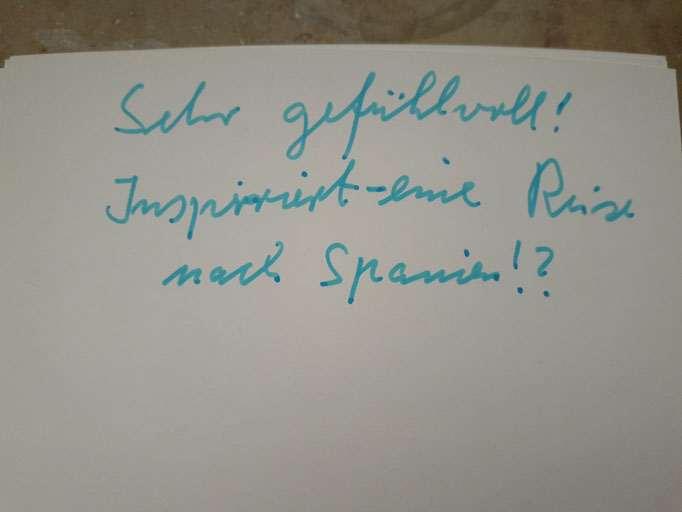 Sehr gefühlvoll!
Inspiriert-eine Reise
nach Spanien!?